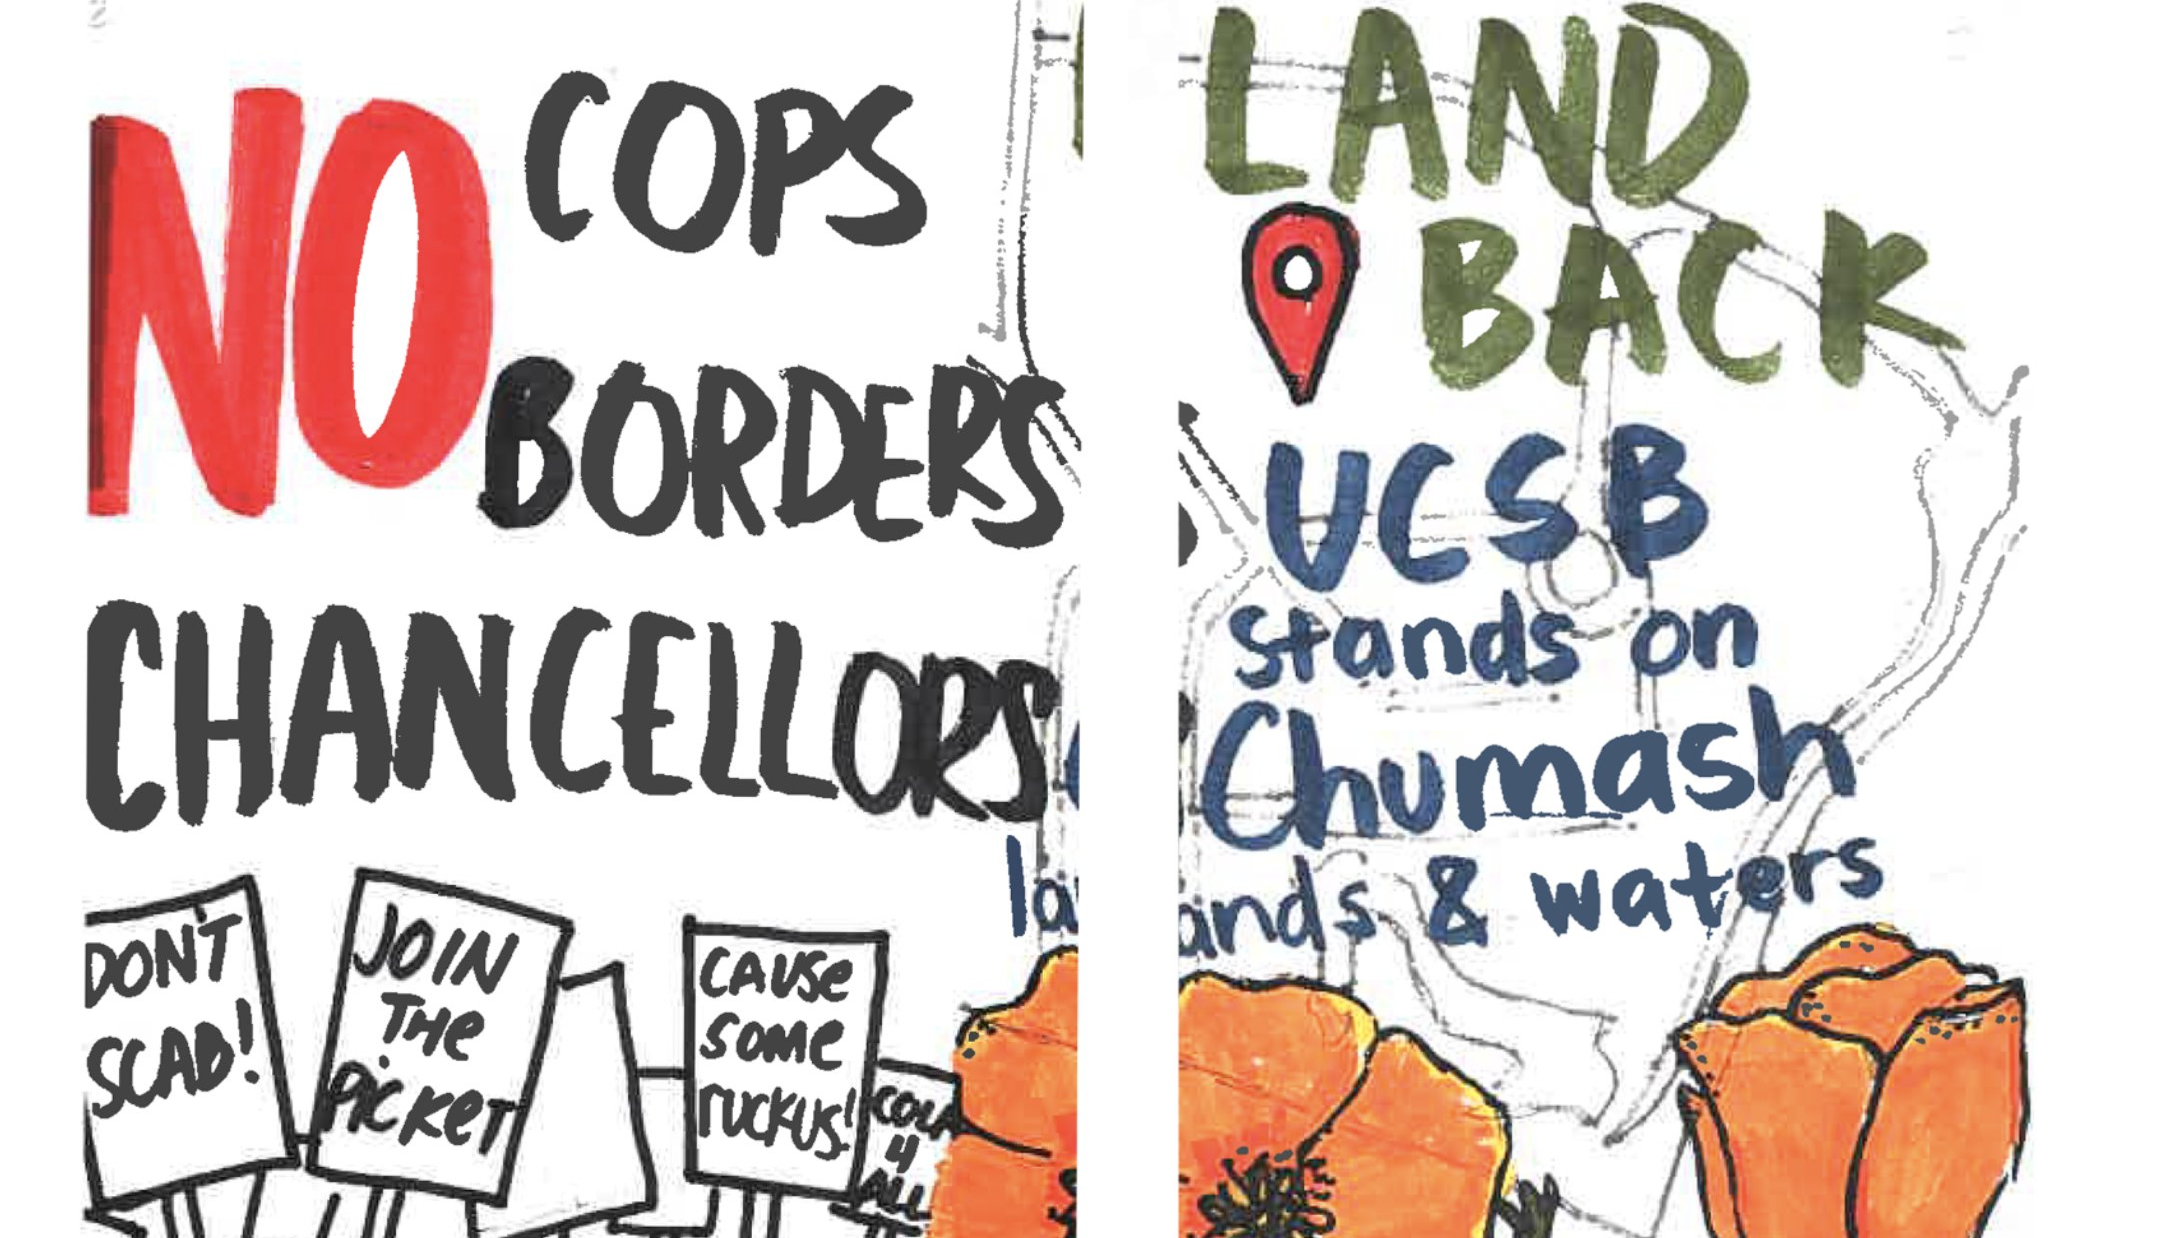 NO COPS
BORDERS
CHANCELLORS
DON'T
SCAB!
JOIN
THE
PICKET
CAUSE
SOME
RUCKUS!
COLA
4
ALL
LAND
BACK
UCSB
stands on
Chumash
lands & waters